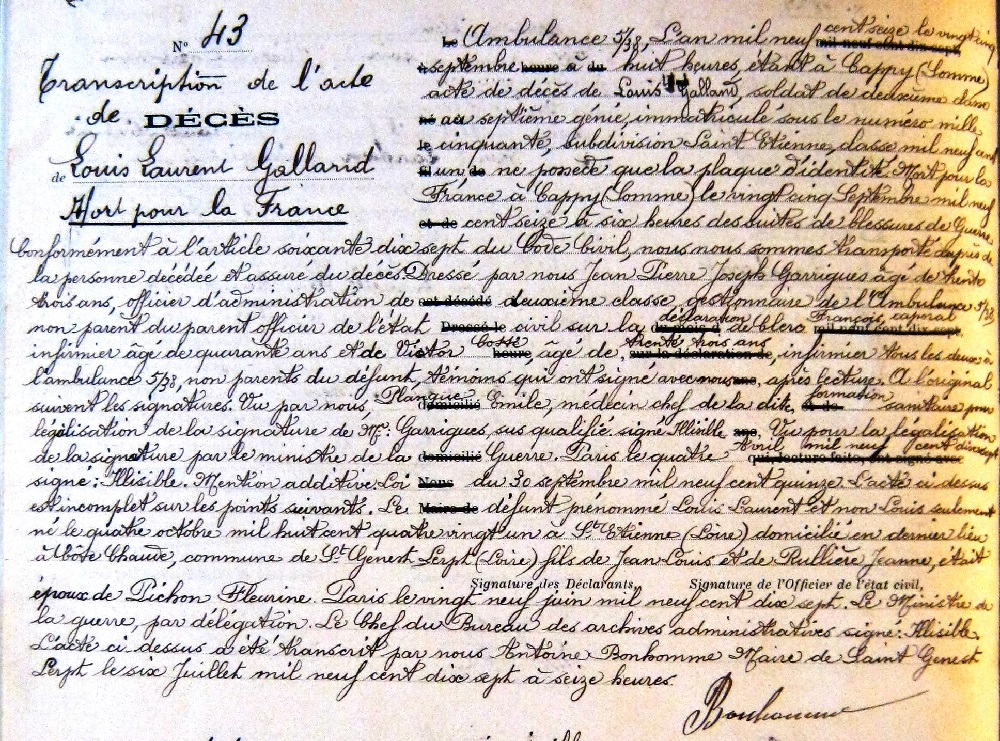 N° 43
Transcription de l'acte
de DÉCÈS
de Louis Laurent Galland
Mort pour la France
Ambulance 5/38, L'an mil neuf cent seize le vingt cinq
septembre à huit heures, étant à Cappy (Somme)
acte de décès de Louis Galland, soldat de deuxième classe
au septième génie, immatriculé sous le numéro mille
cinquante, subdivision Saint Etienne, classe mil neuf cent
un ne possède que la plaque d'identité. Mort pour la
France à Cappy (Somme) le vingt cinq Septembre mil neuf
cent seize à six heures des suites de blessures de Guerre
Conformément à l'article soixante dix sept du Code Civil, nous nous sommes transporté auprès de
la personne décédée et assuré du décès. Dressé par nous Jean Pierre Joseph Garrigues âgé de trente
trois ans, officier d'administration de deuxième classe, gestionnaire de l'Ambulance 5/38
non parent du parent officier de l'état civil sur la déclaration de blerc François, caporal
infirmier âgé de quarante ans et de Victor Cossé, âgé de trente trois ans, infirmier tous les deux à
l'ambulance 5/38, non parents du défunt, témoins qui ont signé avec nous, après lecture. A l'original
suivent les signatures. Vu par nous, Planque Emile, médecin chef de la dite formation sanitaire pour
légalisation de la signature de Mr. Garrigues, sus qualifié. signé Illisible. Vu pour la légalisation
de la signature par le ministre de la Guerre. Paris le quatre Avril mil neuf cent dix sept
signé: Illisible. Mention additive. Loi du 30 septembre mil neuf cent quinze. L'acte ci dessus
est incomplet sur les points suivants. Le défunt prénommé Louis Laurent et non Louis seulement
né le quatre octobre mil huit cent quatre vingt un à St Etienne (Loire) domicilié en dernier lieu
à Côte Chaude, commune de St Genest Lerpt (Loire) fils de Jean Louis et de Rullière, Jeanne, était
Signature des Déclarants, Signature de l'Officier de l'état civil,
époux de Pichon Fleurine. Paris le vingt neuf juin mil neuf cent dix sept. Le Ministre de
la guerre, par délégation. Le Chef du Bureau des archives administratives signé: Illisible.
L'acte ci dessus a été transcrit par nous Antoine Bonhomme Maire de Saint Genest
Lerpt le six Juillet mil neuf cent dix sept à seize heures.
Bonhomme